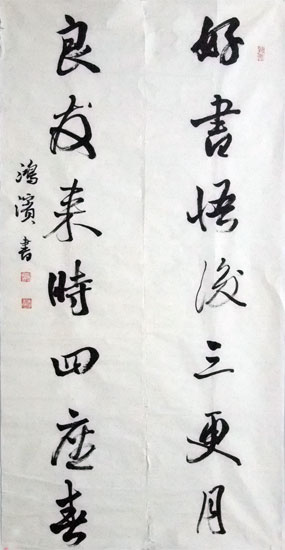 好書悟後三更月
良友来時四座春
鴻濱書